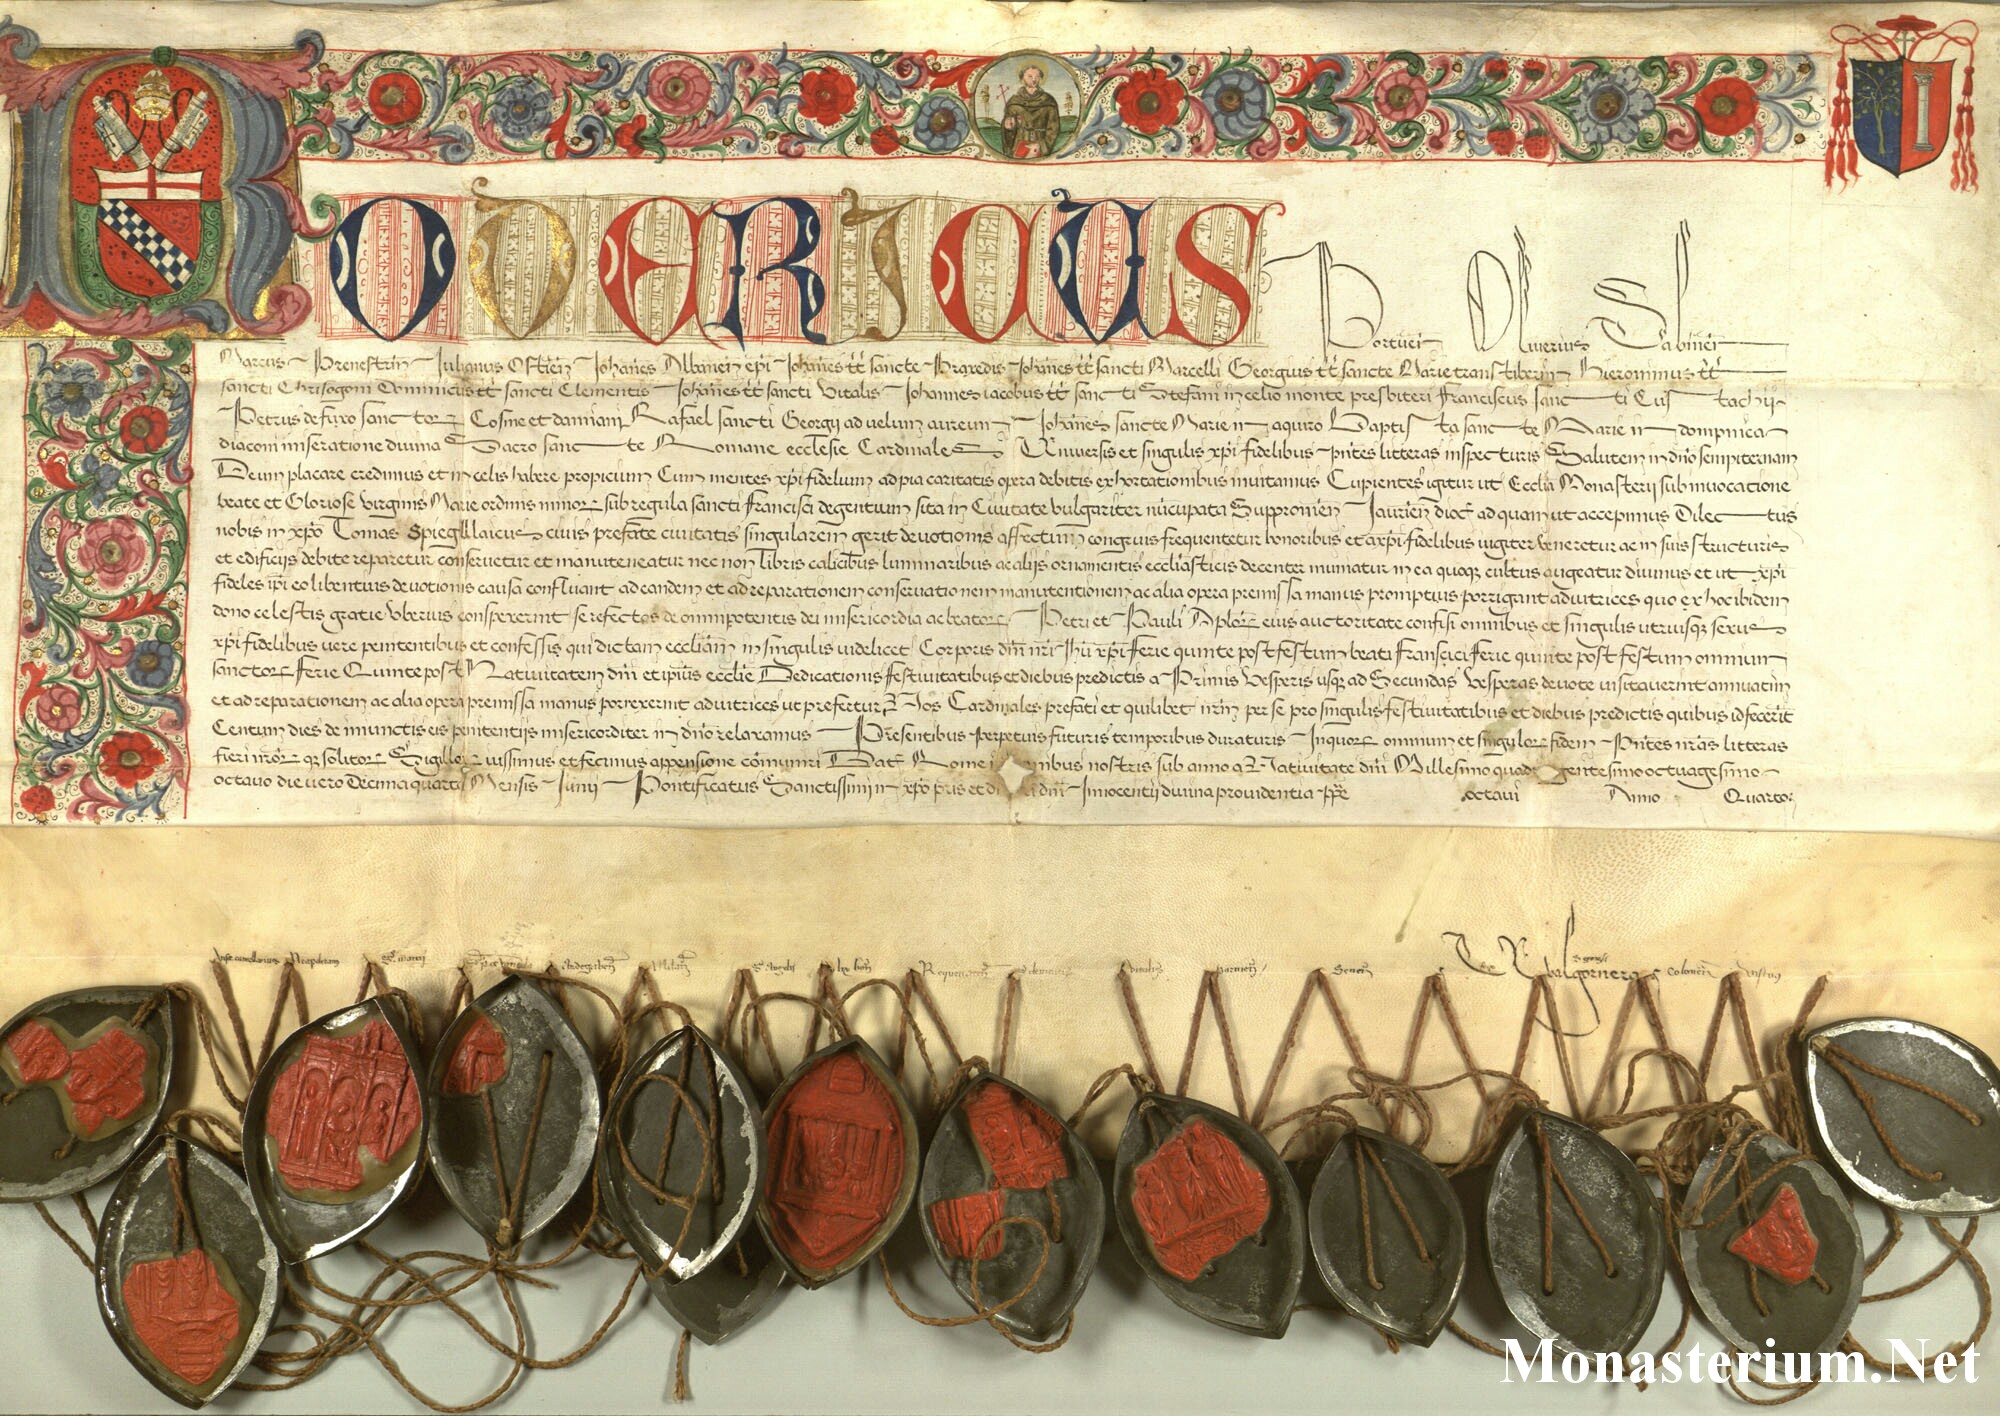 RODERICUS Portuen Oliverius Sabinen
Marcus Prenestrin Iulianus Ostien Johannes Albanen epi Johannes tt sancte Praxedis Johannes tt sancti Marcelli Georgius tt sancte Marie transtiberim Hieronimus tt
sancti Chrisogoni Dominicus tt sancti Clementis Johannes tt sancti Vitalis Johannes iacobus tt sancti Stefani in celio monte presbiteri Franciscus sancti Eustachii
Petrus de fuxo sanctor Cosme et damiani Rafael sancti Georgii ad uelum aureum Johannes sancte Marie in aquiro Baptista sancte Marie in dompnica
diaconi miseratione diuina Sacro sancte Romane ecclesie Cardinales Uniuersis et singulis xpi fidelibus pntes litteras inspecturis Salutem in dno sempiternam
Deum placare credimus et in celis habere propicium Cum mentes xpi fidelium ad pia caritatis opera debitis exhortationibus inuitamus Cupientes igitur ut Ecclia Monasterij sub inuocatione
beate et Gloriose virginis Marie ordinis minor sub regula sancti Francisci degentium sita in Ciuitate vulgariter nucupata Suppronien Jaurien dioc ad quam ut accepimus Dilectus
nobis in xpo Tomas Spiegl laicus ciuis prefate ciuitatis singularem gerit deuotionis affectum congruis frequentetur honoribus et a xpi fidelibus iugiter veneretur ac in suis structuris
et edificijs debite reparetur conseruetur et manuteneatur nec non libris calicibus luminaribus ac alijs ornamentis eccliasticis decenter muniatur in ea quoq cultus augeatur diuinus et ut xpi
fideles ipi eo libentius deuotionis causa confluant ad eandem et ad reparationem conseruationem manutentionem ac alia opera premissa manus promptius porrigant adiutrices quo ex hoc ibidem
dono celestis gratie vberius conspexerint se refectos de omnipotentis dei misericordia ac beator Petri et Pauli Aplor eius auctoritate confisi omnibus et singulis utriusq sexus
xpi fidelibus vere penitentibus et confessis qui dictam eccliam in singulis videlicet Corporis dni nri Jhu xpi Ferie quinte post festum beati Francisci Ferie quinte post festum omnium
sanctor Ferie Quinte post Natiuitatem dni et ipius ecclie Dedicationis festiuitatibus et diebus predictis a Primis vesperis usq ad Secundas vesperas deuote uisitauerint annuatim
et ad reparationem ac alia opera premissa manus porrexerint adiutrices ut prefertur Nos Cardinales prefati et quilibet nrm per se pro singulis festiuitatibus et diebus predictis quibus id fecerint
Centum dies de iniunctis eis penitentijs misericorditer in dno relaxamus Presentibus perpetuis futuris temporibus duraturis In quor omnium et singulor fidem Pntes nras litteras
fieri nror qz solitor Sigillor iussimus et fecimus appensione comuniri Dat Rome in nibus nostris sub anno a Natiuitate dni Millesimo quadringentesimo octuagesimo
octauo die vero Decima quarta Mensis Junij Pontificatus Sanctissimi in xpo pris et dni Innocentij diuina prouidentia ppe octaui Anno Quarto
vicecancellarius Neapolitan S. marci Andegaven Milan S. Angeli parmen Senen
Monasterium.Net